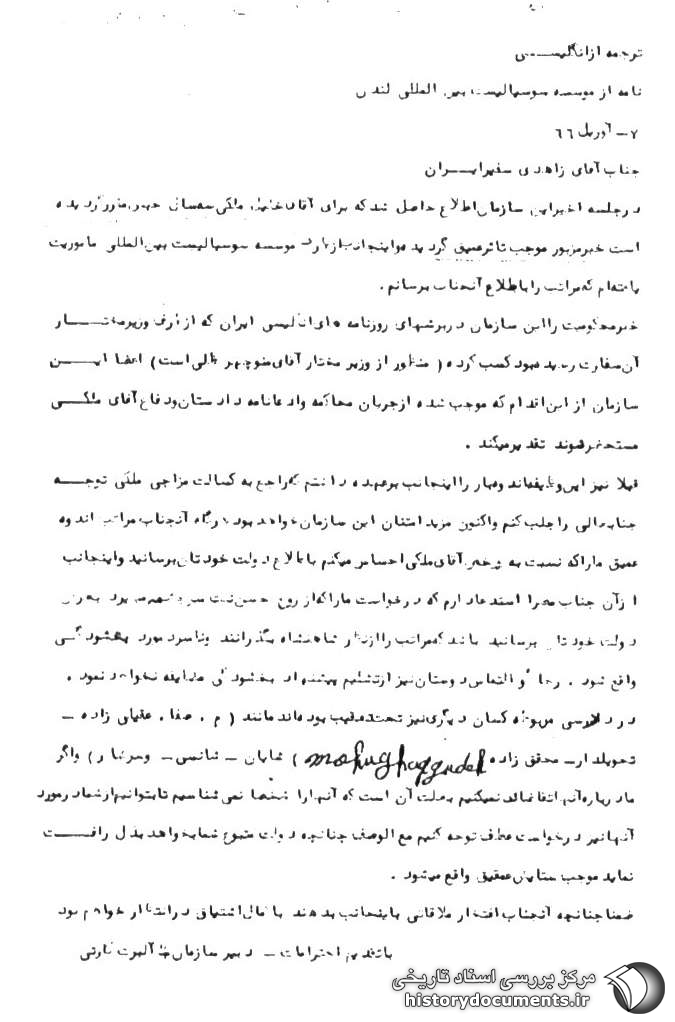 ترجمه از انگلیسی
نامه از موسسه سوسیالیست بین المللی لندن
۷ – آوریل ۶۶
جناب آقای زاهدی سفیر ایران
در جلسه اخیر این سازمان اطلاع حاصل شد که برای آقای خلیل ملکی سه سال حبس مقرر گردیده
است خبر مزبور موجب تاثر عمیق گردیده و اینجانب از طرف موسسه سوسیالیست بین المللی ماموریت
یافته‌ام که مراتب را باطلاع آنجناب برسانم .
خبر محکومیت را این سازمان در برشهای روزنامه های انگلیسی ایران که از طرف وزیر مختار
آن سفارت رسیده بود کسب کرده ( منظور از وزیر مختار آقای منوچهر ظلی است ) اعضا این
سازمان از این اقدام که موجب شده از جریان محاکمه وادعانامه دادستان و دفاع آقای ملکی
مستحضر شوند تقدیر میکند .
قبلا نیز این وظیفه اندوهبار را اینجانب بر عهده داشتم که راجع به کسالت مزاجی ملکی توجه
جنابعالی را جلب کنم واکنون مزید امتنان این سازمان خواهد بود هرگاه آنجناب مراتب اندوه
عمیق ما را که نسبت به آقای ملکی احساس میکنم باطلاع دولت خودتان برسانید و اینجانب
از آن جناب استدعا دارم که درخواست ما را که از روح حسن نیت سرچشمه میبرد بعرض
دولت خودتان برسانید باشد که مراتب را از نظر شاهنشاه بگذرانند ونامبرده مورد بخشودگی
واقع شود . رجا و التماس دوستان نیز از تسلیم پیشنهاد بخشودگی مضایقه نخواهد نمود .
در دادرسی مربوطه کسان دیگری نیز تحت تعقیب بوده‌اند مانند ( م . صفا . عقیلی زاده –
تحویلدار – محقق زاده mohughegzadeh ) نمایان – شانسی – وسرشار ) واگر
ما درباره آنها تقاضائی نمیکنیم بعلت آن است که آنها را شخصا نمی شناسیم تا بتوانیم از شما در مورد
آنها نیز درخواست عطف توجه کنیم مع الوصف چنانچه دولت متبوع شما بخواهد بذل رافت
نماید موجب ستایش عمیق واقع میشود .
ضمنا چنانچه آنجناب افتخار ملاقاتی باینجانب بدهند با کمال اشتیاق در انتظار خواهم بود
با تقدیم احترامات – دبیر سازمان آلبرت کارتی
مرکز بررسی اسناد تاریخی
historydocuments.ir